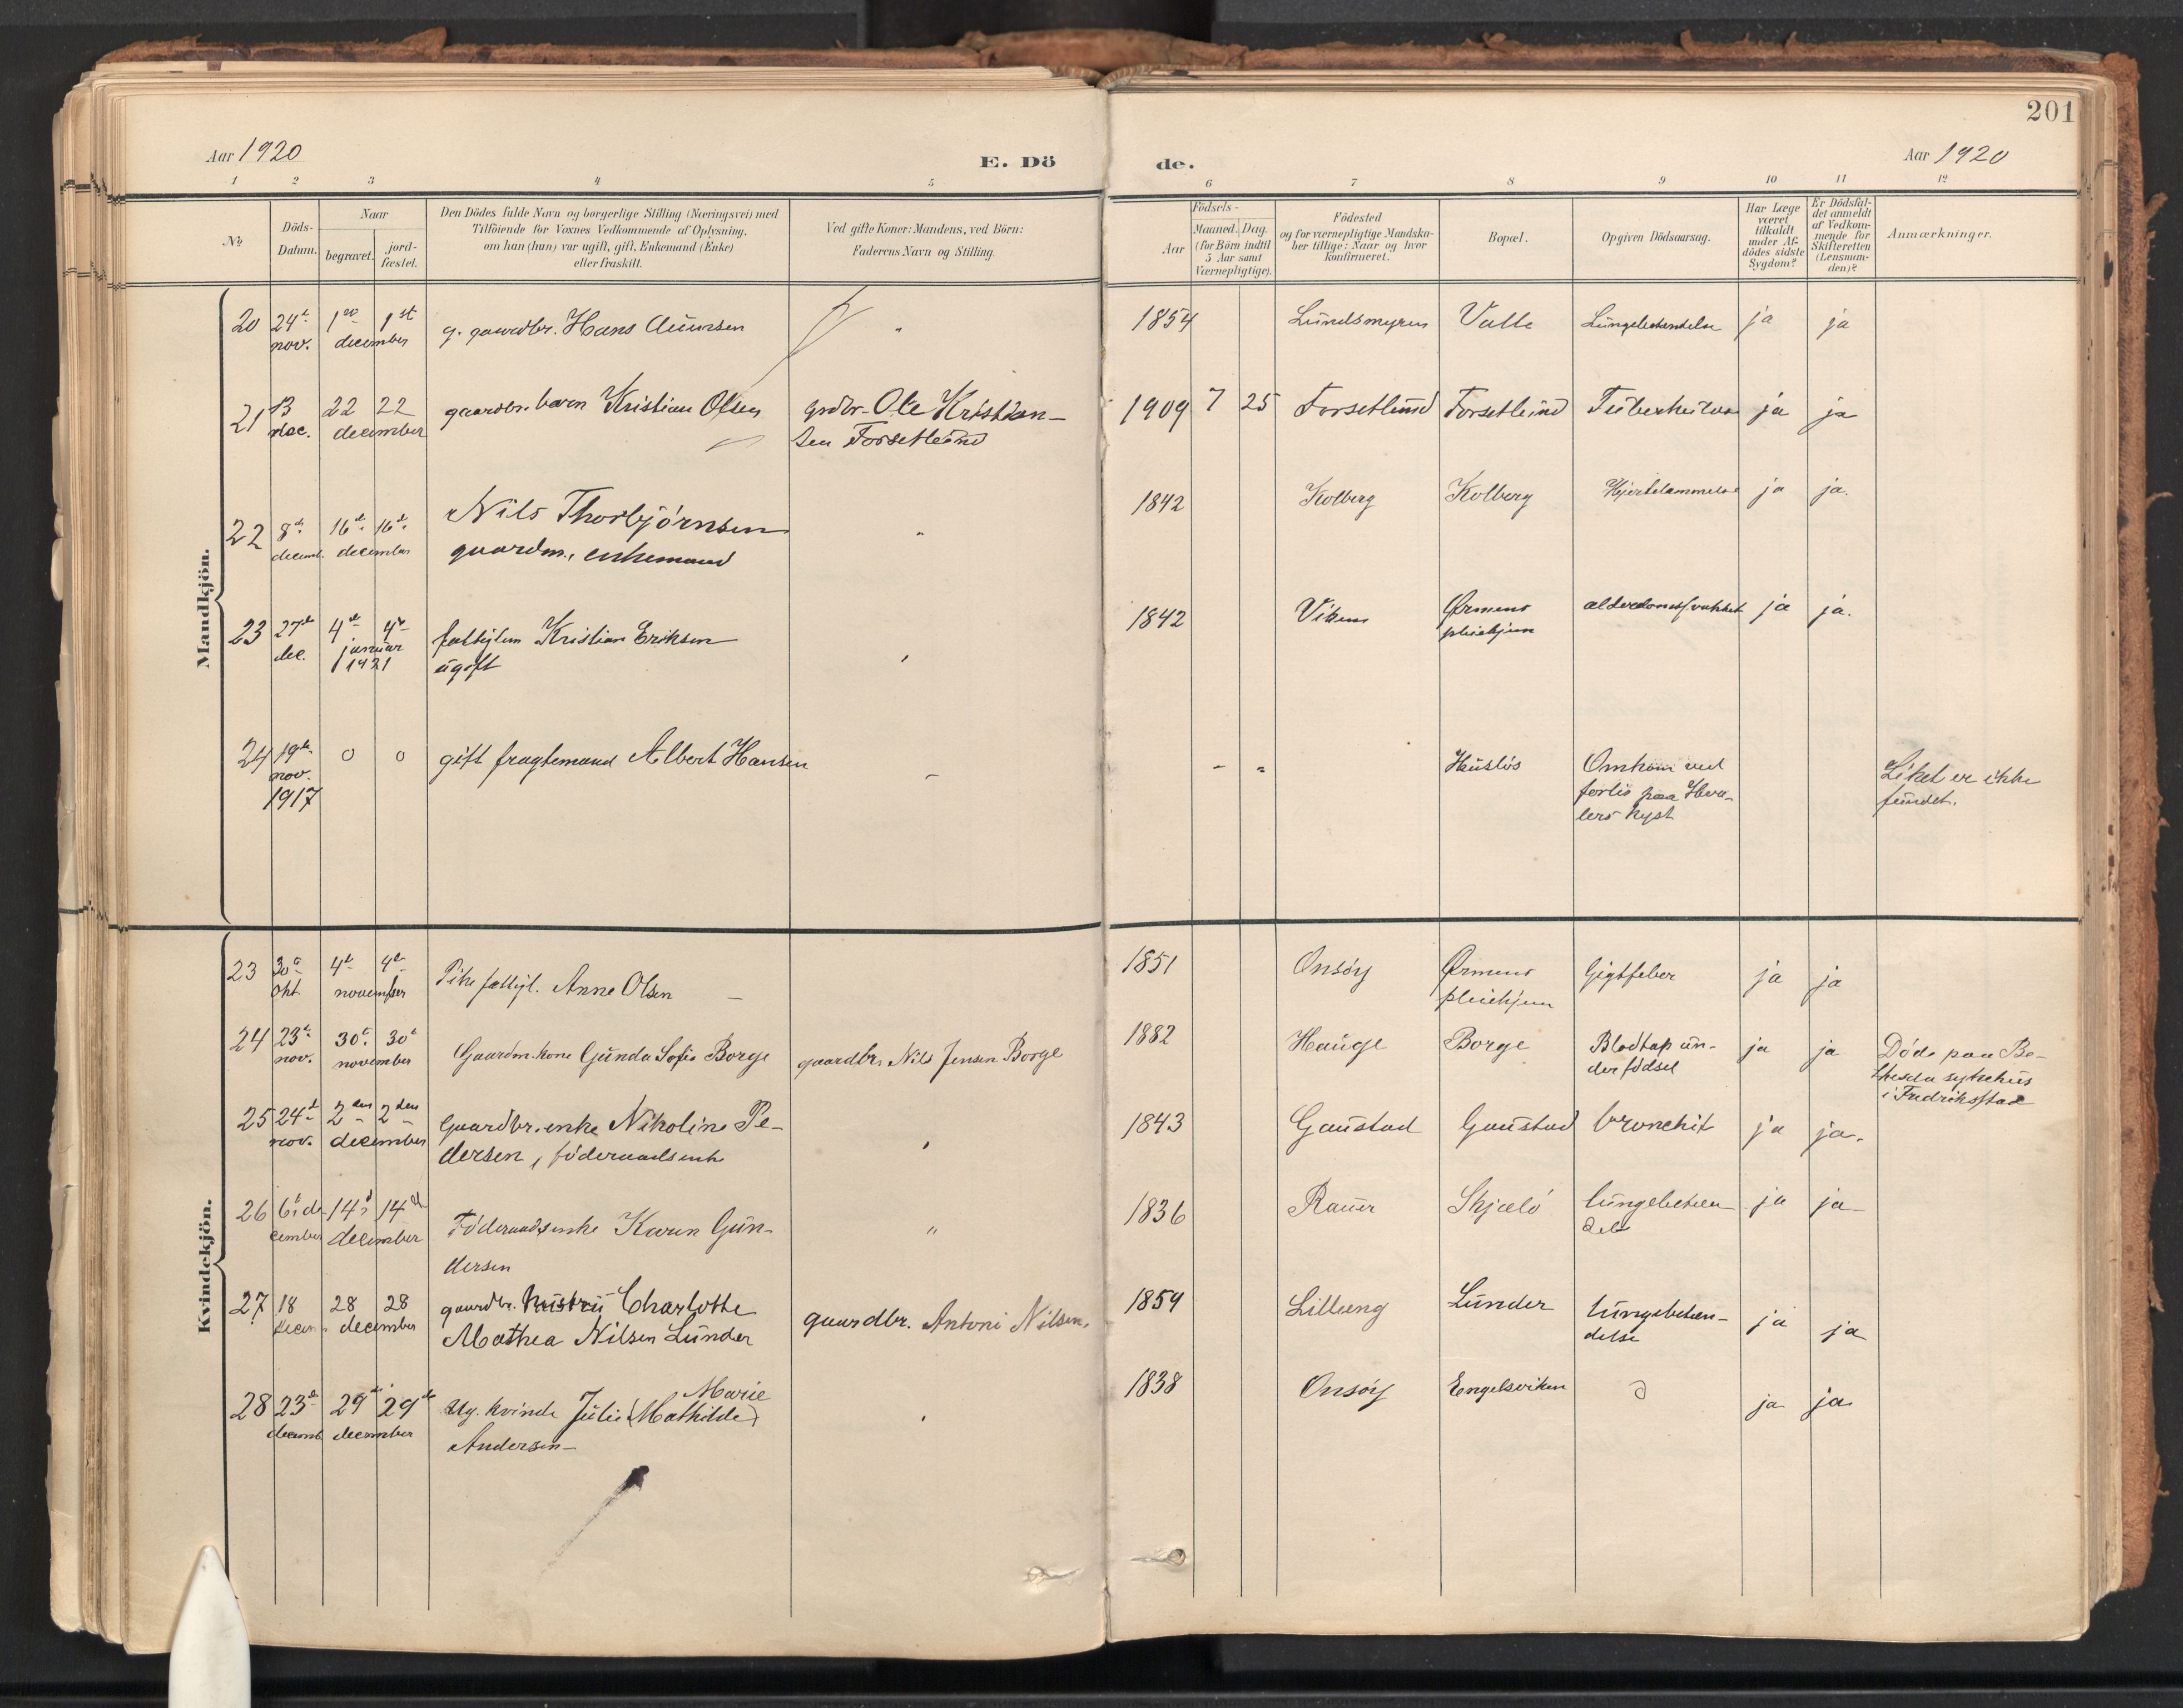 201
Aar 1920
E. Dö
de.
Aar 1920
1 2 3 4 5 6 7 8 9 10 11 12
No
Döds-
Datum.
Naar
begravet.
jord-
fæstet.
Den Dödes fulde Navn og borgerlige Stilling (Næringsvei) med
Tilföiende for Voxnes Vedkommende af Oplysning,
om han (hun) var ugift, gift, Enkemand (Enke)
eller fraskilt.
Ved gifte Koner: Mandens, ved Börn:
Faderens Navn og Stilling.
Födsels-
Aar
Maaned. Dag.
(for Börn indtil
5 Aar samt
Værnepligtige).
Födested
og for værnepligtige Mandska-
ber tillige: Naar og hvor
konfirmeret.
Bopæl.
Opgiven Dödsaarsag.
Har Læge
været
tilkaldt
under Af-
dödes sidste
Sygdom?
Er Dödsfal-
det anmeldt
af Vedkom-
mende for
Skifteretten
(Lensman-
den)?
Anmærkninger.
Mandkjön.
20 24de 1ste 1st g. gaardbr. Hans " 1854 Lundsmyren Valle Lungebetændelse ja ja
nov. december
21 13 22 22 gaardbr. barn Kristian Olsen grdbr. Ole Kristian- 1909 7 25 Forsetlund Forsetlund Tuberkulose ja ja
dec. december sen Forsetlund
22 8de 16de 16de Nils Thorbjörnsen " 1842 Kolberg Kolberg Hjertelammelse ja ja.
decemb. december gaardm., enkemand
23 27de 4de 4de fattiglem Kristian Eriksen 1842 Viken Ørmens alderdomssvakhet ja ja.
dec. januar ugift pleiehjem
1921
24 19de 0 0 gift fragtemand Albert Hansen - - " Huslös Omkom ved Liket er ikke
nov. forlis paa Hva- fundet.
1917 lers kyst
Kvindekjön.
23 30te 4de 4de Pike fattigl. Anne Olsen - 1851 Onsöy Ørmens Gigtfeber ja ja
okt. november pleiehjem
24 23de 30te 30te Gaardm. kone Gunda Sofie Borge gaardbr. Nils Jensen Borge 1882 Hauge Borge Blodtap un- ja ja Döde paa Be-
nov. november der födsel thesda sykehus
i Fredriksstad
25 24de 2den 2den Gaardbr. enke Nikoline Pe- 1843 Gaustad Gaustad bronchit ja ja.
nov. december dersen, föderaadsenke
26 6te de- 14de 14de Föderaadsenke Karen Gun- " 1836 Rauer Skjælö lungebetæn- ja ja
cember december dersen delse
27 18 28 28 gaardbr. hustru Charlotte gaardbr. Antoni Nilsen. 1859 Lilleeng Lunder lungebetæn- ja ja
decem. december Mathea Nilsen Lunder delse
28 23de 29de 29de Ug. kvinde Julie (Mathilde) Marie 1838 Onsöy Engelsviken ja ja
decemb. december Andersen -